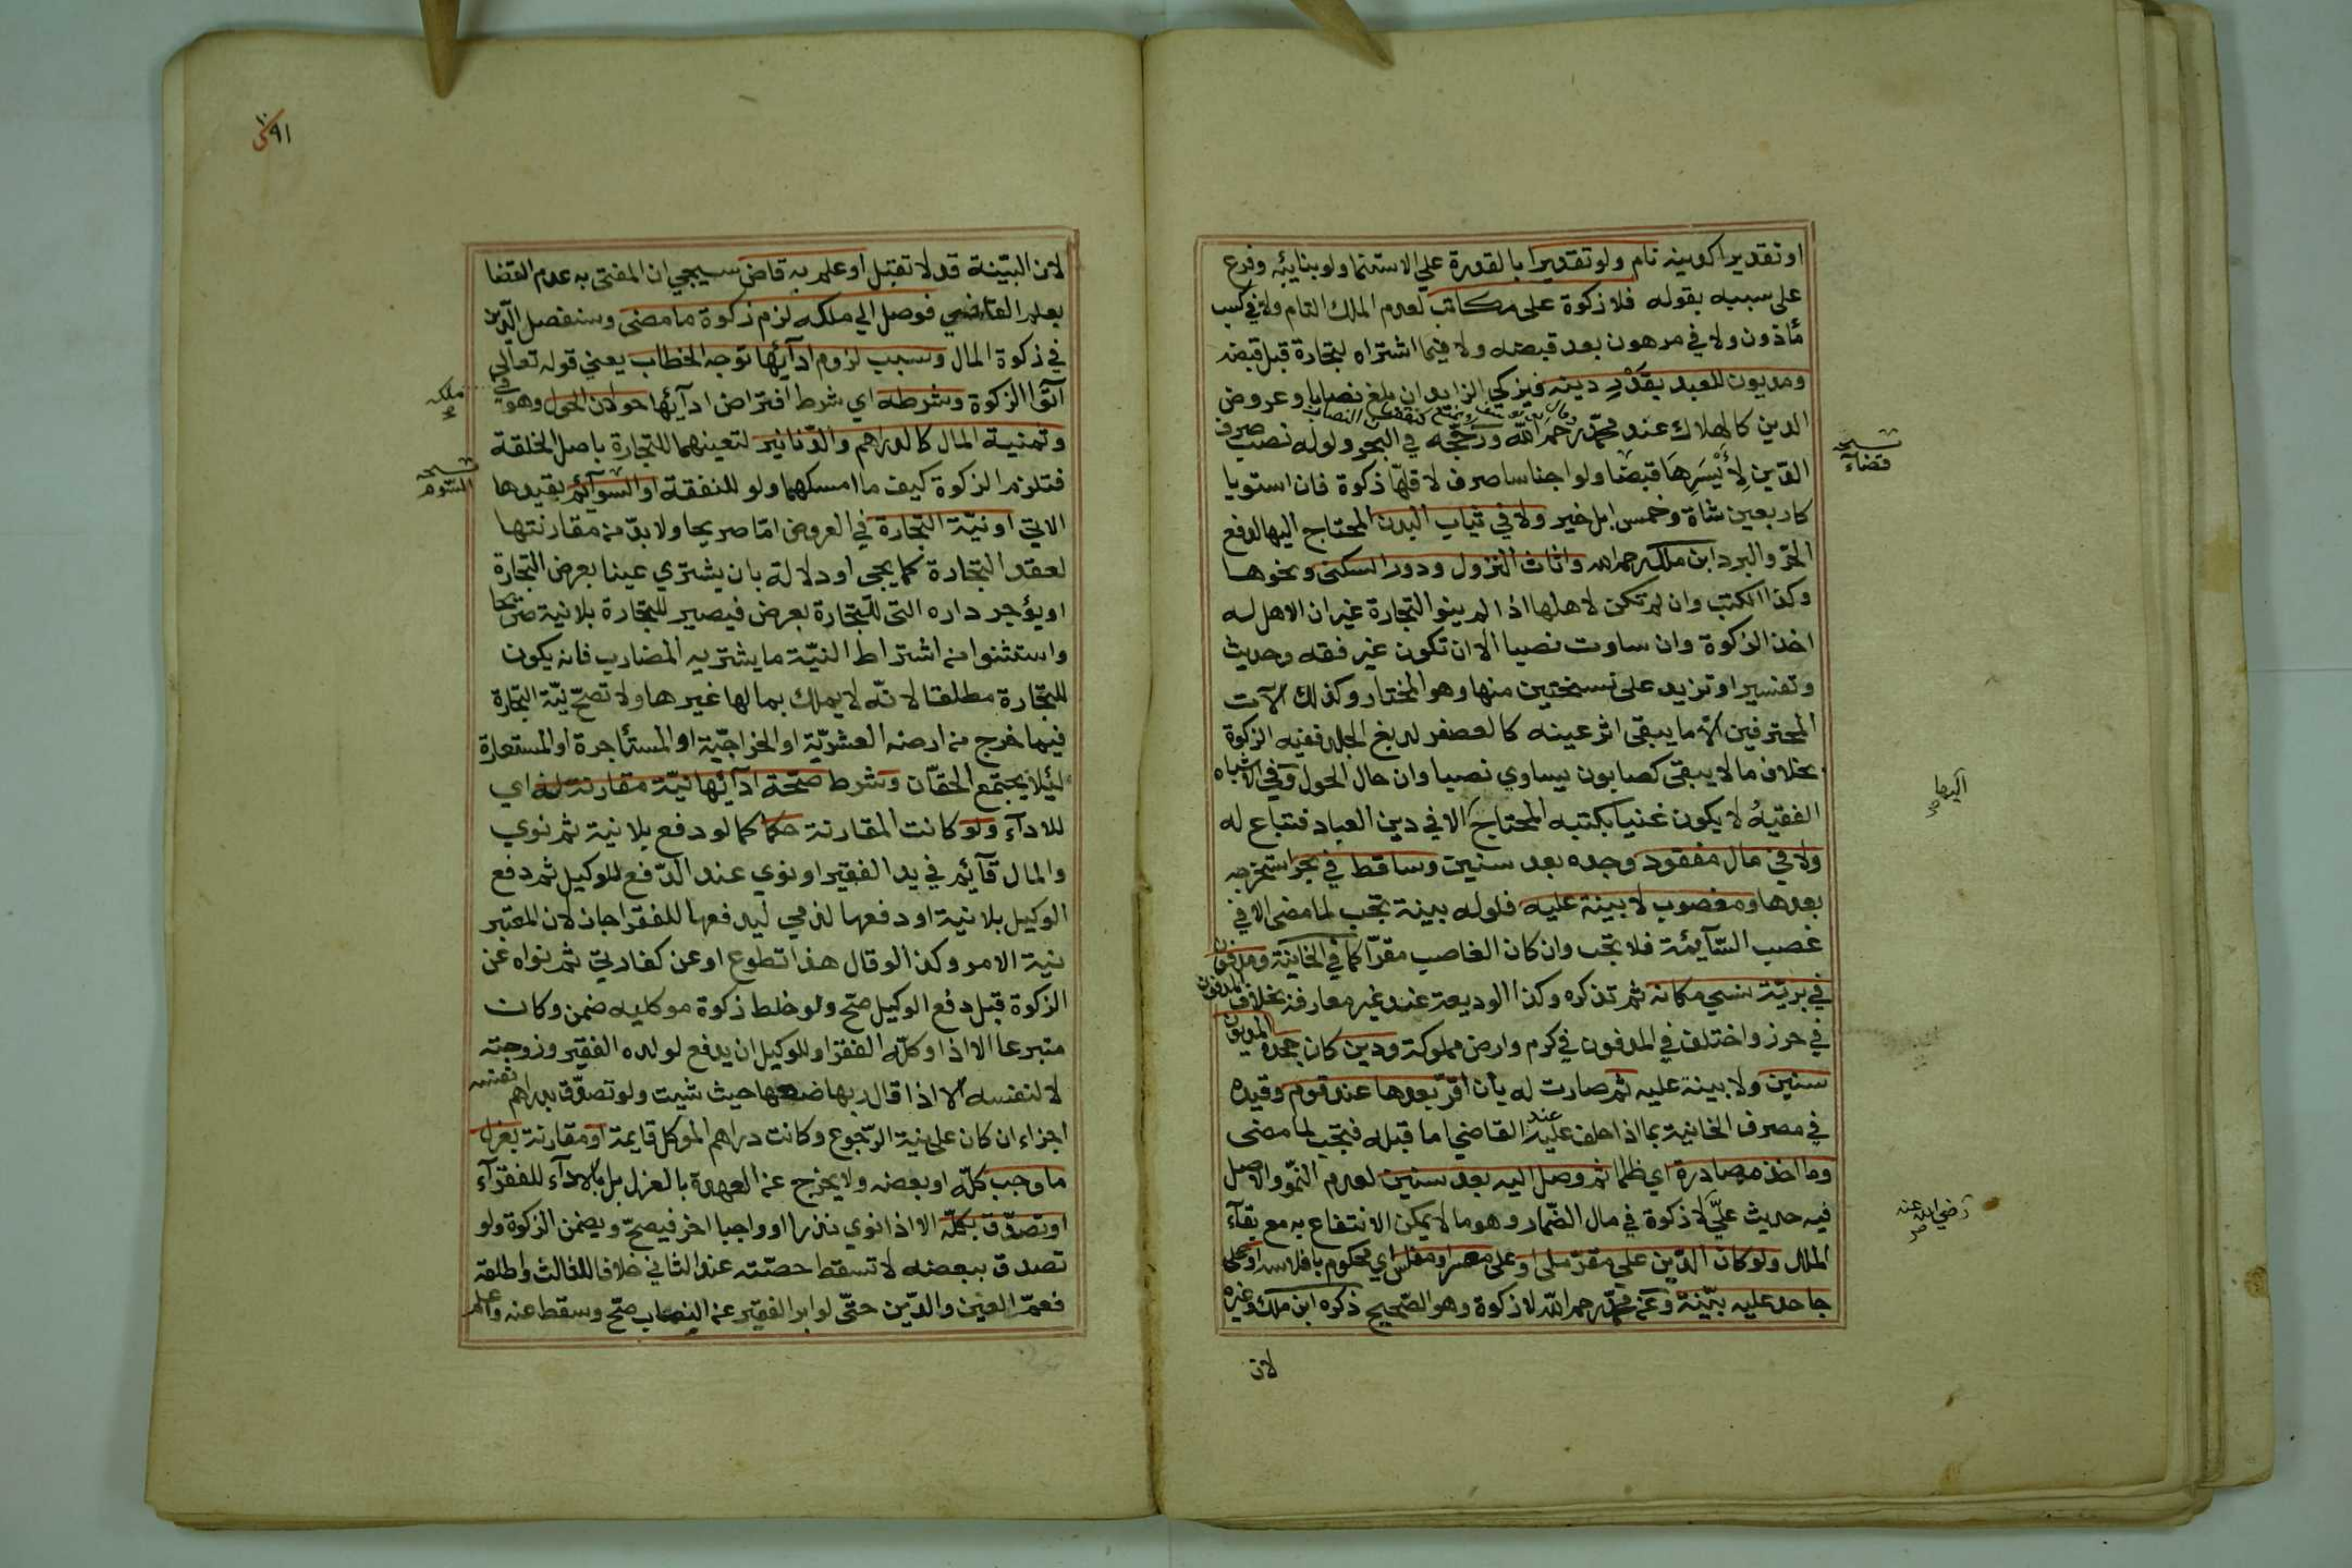 او تقديرا كدينه نام ولو تقديرا بالقدرة علي الاستنما ولو بنايبه وفرع
على سببه بقوله فلا زكوة على مكاتب لعدم الملك التام ولا في كسب
مأذون ولا في مرهون بعد قبضه ولا فيما اشتراه لتجارة قبل قبضه
ومديون للعبد بقدر دينه فيزكي الزايد ان بلغ نصابا وعروض
الدين كالهلاك عند محمّد رحمه اللّه ورجّحه في البحر ولو له نصب صرف
الدّين لِأَيْسَرِهَا قبضا ولو اجناسا صرف لاقلّها زكوة فان استويا
كاربعين شاة وخمس ابل خير ولا في ثياب البدن المحتاج اليها لدفع
الحرّ والبرد ابن ملك رحمه الله واثاث المنزول ودور السكنى ونحوها
وكذا الكتب وان لم تكن لاهلها اذا لم ينو التجارة غير ان الاهل له
اخذ الزكوة وان ساوت نصبا الا ان تكون غير فقه وحديث
وتفسير او تزيد على نسختين منها وهو المختار وكذلك الآت
المحترفين الّا ما يبقى اثر عينه كالعصفر لدبغ الجلد ففيه الزكوة
بخلاف ما لا يبقى كصابون يساوي نصبا وان حال الحول وفي الاشباه
الفقيهُ لا يكون غنيا بكتبه المحتاج الا في دين العباد فتباع له
ولا في مال مفقود وجده بعد سنين وساقط في بحر استخرجه
بعدها ومغصوب لا بينة عليه فلو له بينة تجب لما مضى الا في
غصب السّآيمة فلا تجب وان كان الغاصب مقرّا كما في الخانية ومدفون
في بريّة نسي مكانه ثم تذكره وكذا الوديعة عند غير معارفه بخلاف المدفون
في حرز واختلف في المدفون في كرم وارض مملوكة ودين كان جحده المديون
سنين ولا بينة عليه ثم صارت له بأن اقرّ بعدها عند قوم وقيده
في مصرف الخانية بما اذا حلف عليه عند القاضي اما قبله فتجب لما مضى
وما اخذ مصادرة اي ظلما ثم وصل اليه بعد سنين لعدم النموّ والاصل
فيه حديث عليّ لا زكوة في مال الضّمار وهو ما لا يمكن الانتفاع به مع بقآء
الملك ولو كان الدّين على مقرّ ملى او على معسر او مفلس اي محكوم بافلاسه او على
جاحد عليه بيّنة وعن محمّد رحمه اللّه لا زكوة وهو الصّحيح ذكره ابن ملك وغيره
لان
نسخه
قضآء
رضي الله عنه
صح
٩١
لانّ البيّنة قد لا تقبل او علم به قاض سيجي ان المفتى به عدم القضا
بعلم القاضي فوصل الي ملكه لزم زكوة ما مضى وسنفصل الدّين
في زكوة المال وسبب لزوم ادآئها توجه الخطاب يعني قوله تعالى
آتوا الزكوة وشرطه اي شرط افتراض ادآئها حولان الحول وهو في
وثمنية المال كالدراهم والدّنانير لتعينهما للتجارة باصل الخلقة
فتلزم الزكوة كيف ما امسكهما ولو للنفقة او السوآئم بقيدها
الاتي او نيّة التجارة في العروض امّا صريحا ولا بدّ من مقارنتها
لعقد التجارة كما يجي او دلالة بان يشتري عينا بعرض التجارة
او يؤجر داره التى للتّجارة بعرض فيصير للتجارة بلا نية صريحا
واستثنوا من اشتراط النيّة ما يشتريه المضارب فانه يكون
للتجّارة مطلقا لانّه لا يملك بمالها غيرها ولا تصحّ نيّة التجّارة
فيما خرج من ارضه العشريّة او الخراجيّة او المستأجرة او المستعارة
لئيلا يجتمع الحقّان وشرط صحّة ادآئها نيّة مقارنة له اي
للادآء ولو كانت المقارنة حكما كما لو دفع بلا نية ثم نوي
والمال قآئم في يد الفقير او نوي عند الدّفع للوكيل ثم دفع
الوكيل بلا نية او دفعها لذمي ليدفعها للفقرا جاز لان المعتبر
نية الامر وكذا لو قال هذا تطوع او عن كفارتي ثم نواه عن
الزكوة قبل دفع الوكيل صحّ ولو خلط زكوة موكليه ضمن وكان
متبرعا الا اذا وكلّه الفقرا وللوكيل ان يدفع لولده الفقير وزوجته
لا لنفسه الّا اذا قال ربها ضعها حيث شيت ولو تصدّق بدراهم نفسه
اجزاء ان كان على نية الرّجوع وكانت دراهم الموكل قايمة او مقارنة بعزل
ما وجب كلّه او بعضه ولا يخرج عن العهدة بالعزل بل بالادآء للفقرآء
او تصدّق بكلّه الا اذا نوي نذرا او واجبا اخر فيصحّ ويضمن الزكوة ولو
تصدق ببعضه لا تسقط حصّته عند الثاني خلافا للثالث واطلقه
فعمّ العين والدّين حتّى لو ابر الفقير عن النصاب صحّ وسقط عنه واعلم
ملكه
نسخه
السّوم